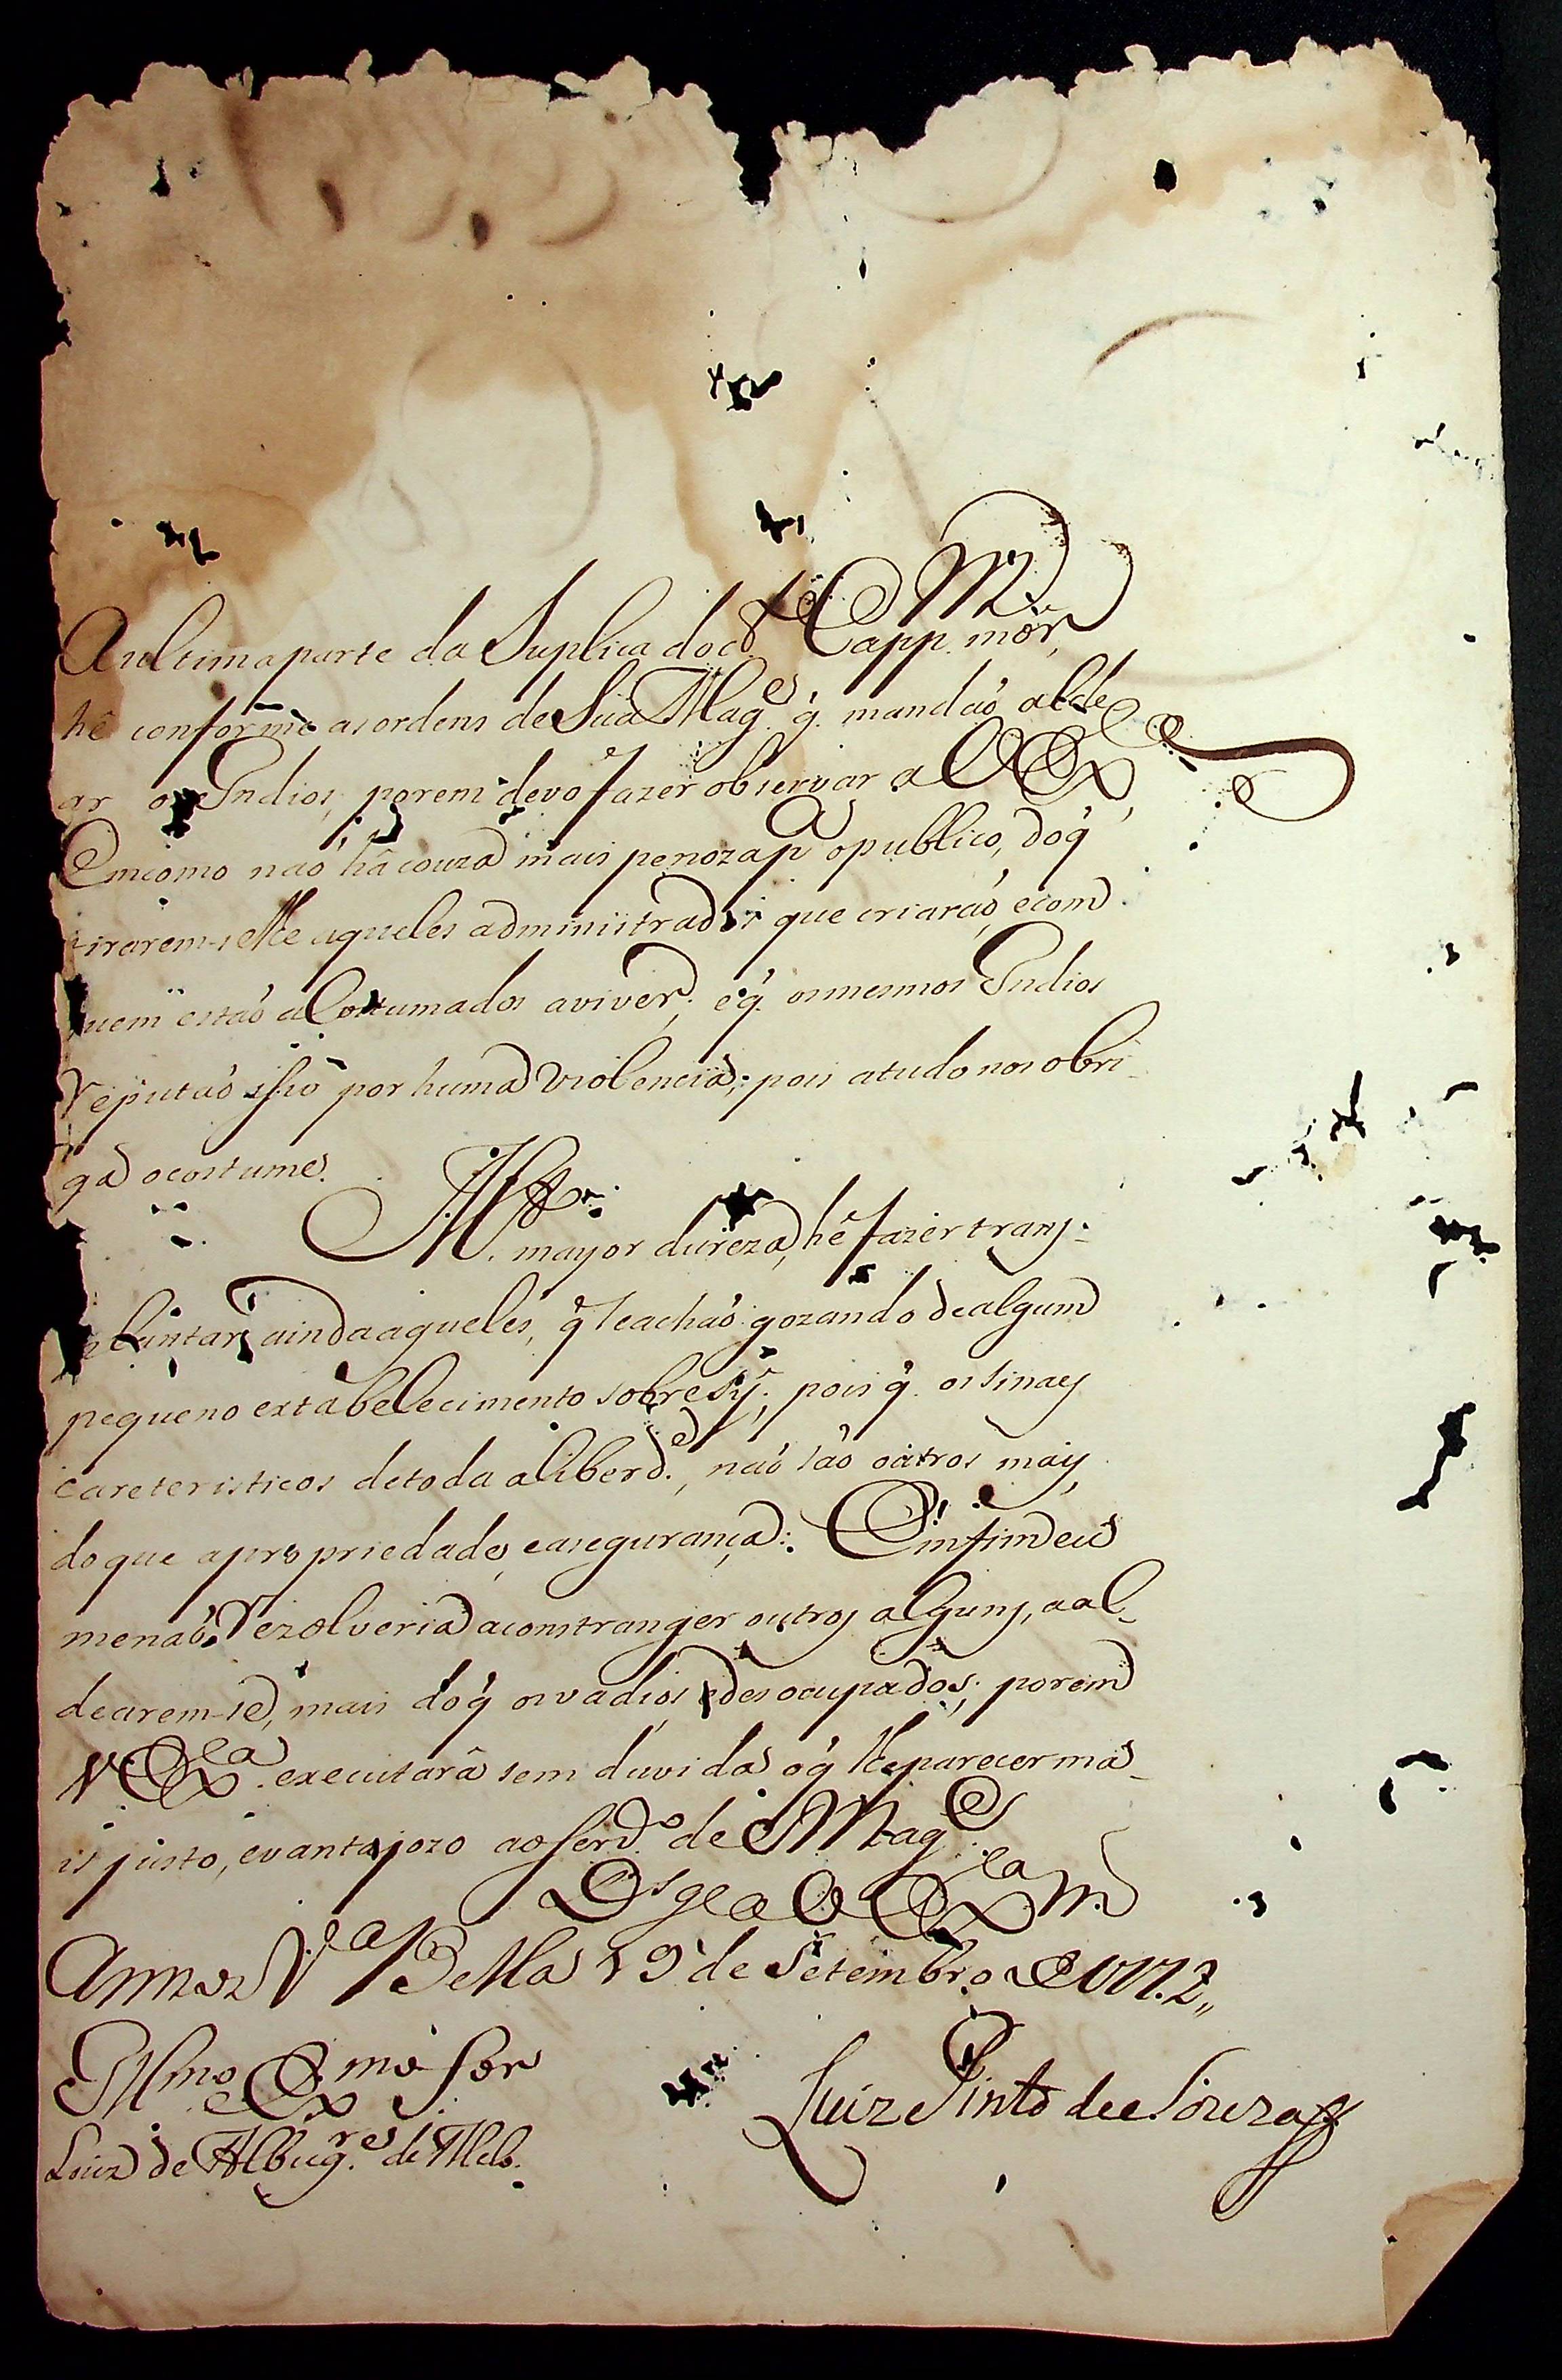 A ultima parte da Suplica do d.º Cap.m mór,
hê conforme as ordens de Sua Mag.e q̃. mandaõ alde
ar os Indios, porem devo fazer observar a V Ex.ª,
Em como naõ hâ couza mais penoza p.ª o publico, do q̃
tirarem-selhe aqueles administrados que criaraõ, e com
quem estaõ aCostumados a viver; e q̃. os mesmos Indios
reputaõ isso por huma violencia; pois a tudo nos obri-
ga o costume.
mayor dureza, hê fazer trans-
plantar ainda aqueles, q̃ se achaõ gozando de algum
pequeno extabelecimento sobre sy; pois q̃. os sinaes
careteristicos de toda a liberd.e, naõ saõ outros mais,
do que a propriedade, e a segurança: Emfim eu
me naõ rezolveria a constranger outros alguns, a al-
dearem-se, mais do q̃ os vadios, e desocupados; porem
V Ex.ª executarâ sem duvida o q̃ lhe parecer ma-
is justo, e vantajozo ao ser.º de S Mag.e
D.s g.e a V Ex.ª m.
Annos V.ª Bella 19 de Setembro de 1772,,
Ill.mo e Ex.mo S.or
Luiz de Albuq.res de Mello.
Luiz Pinto de Souza